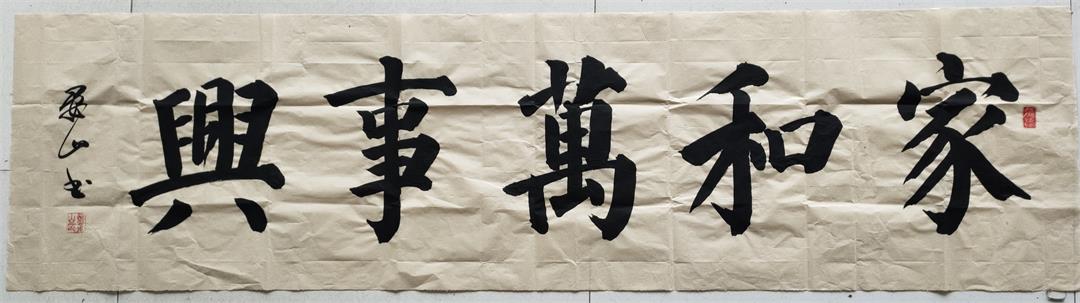 家和萬事興
山书